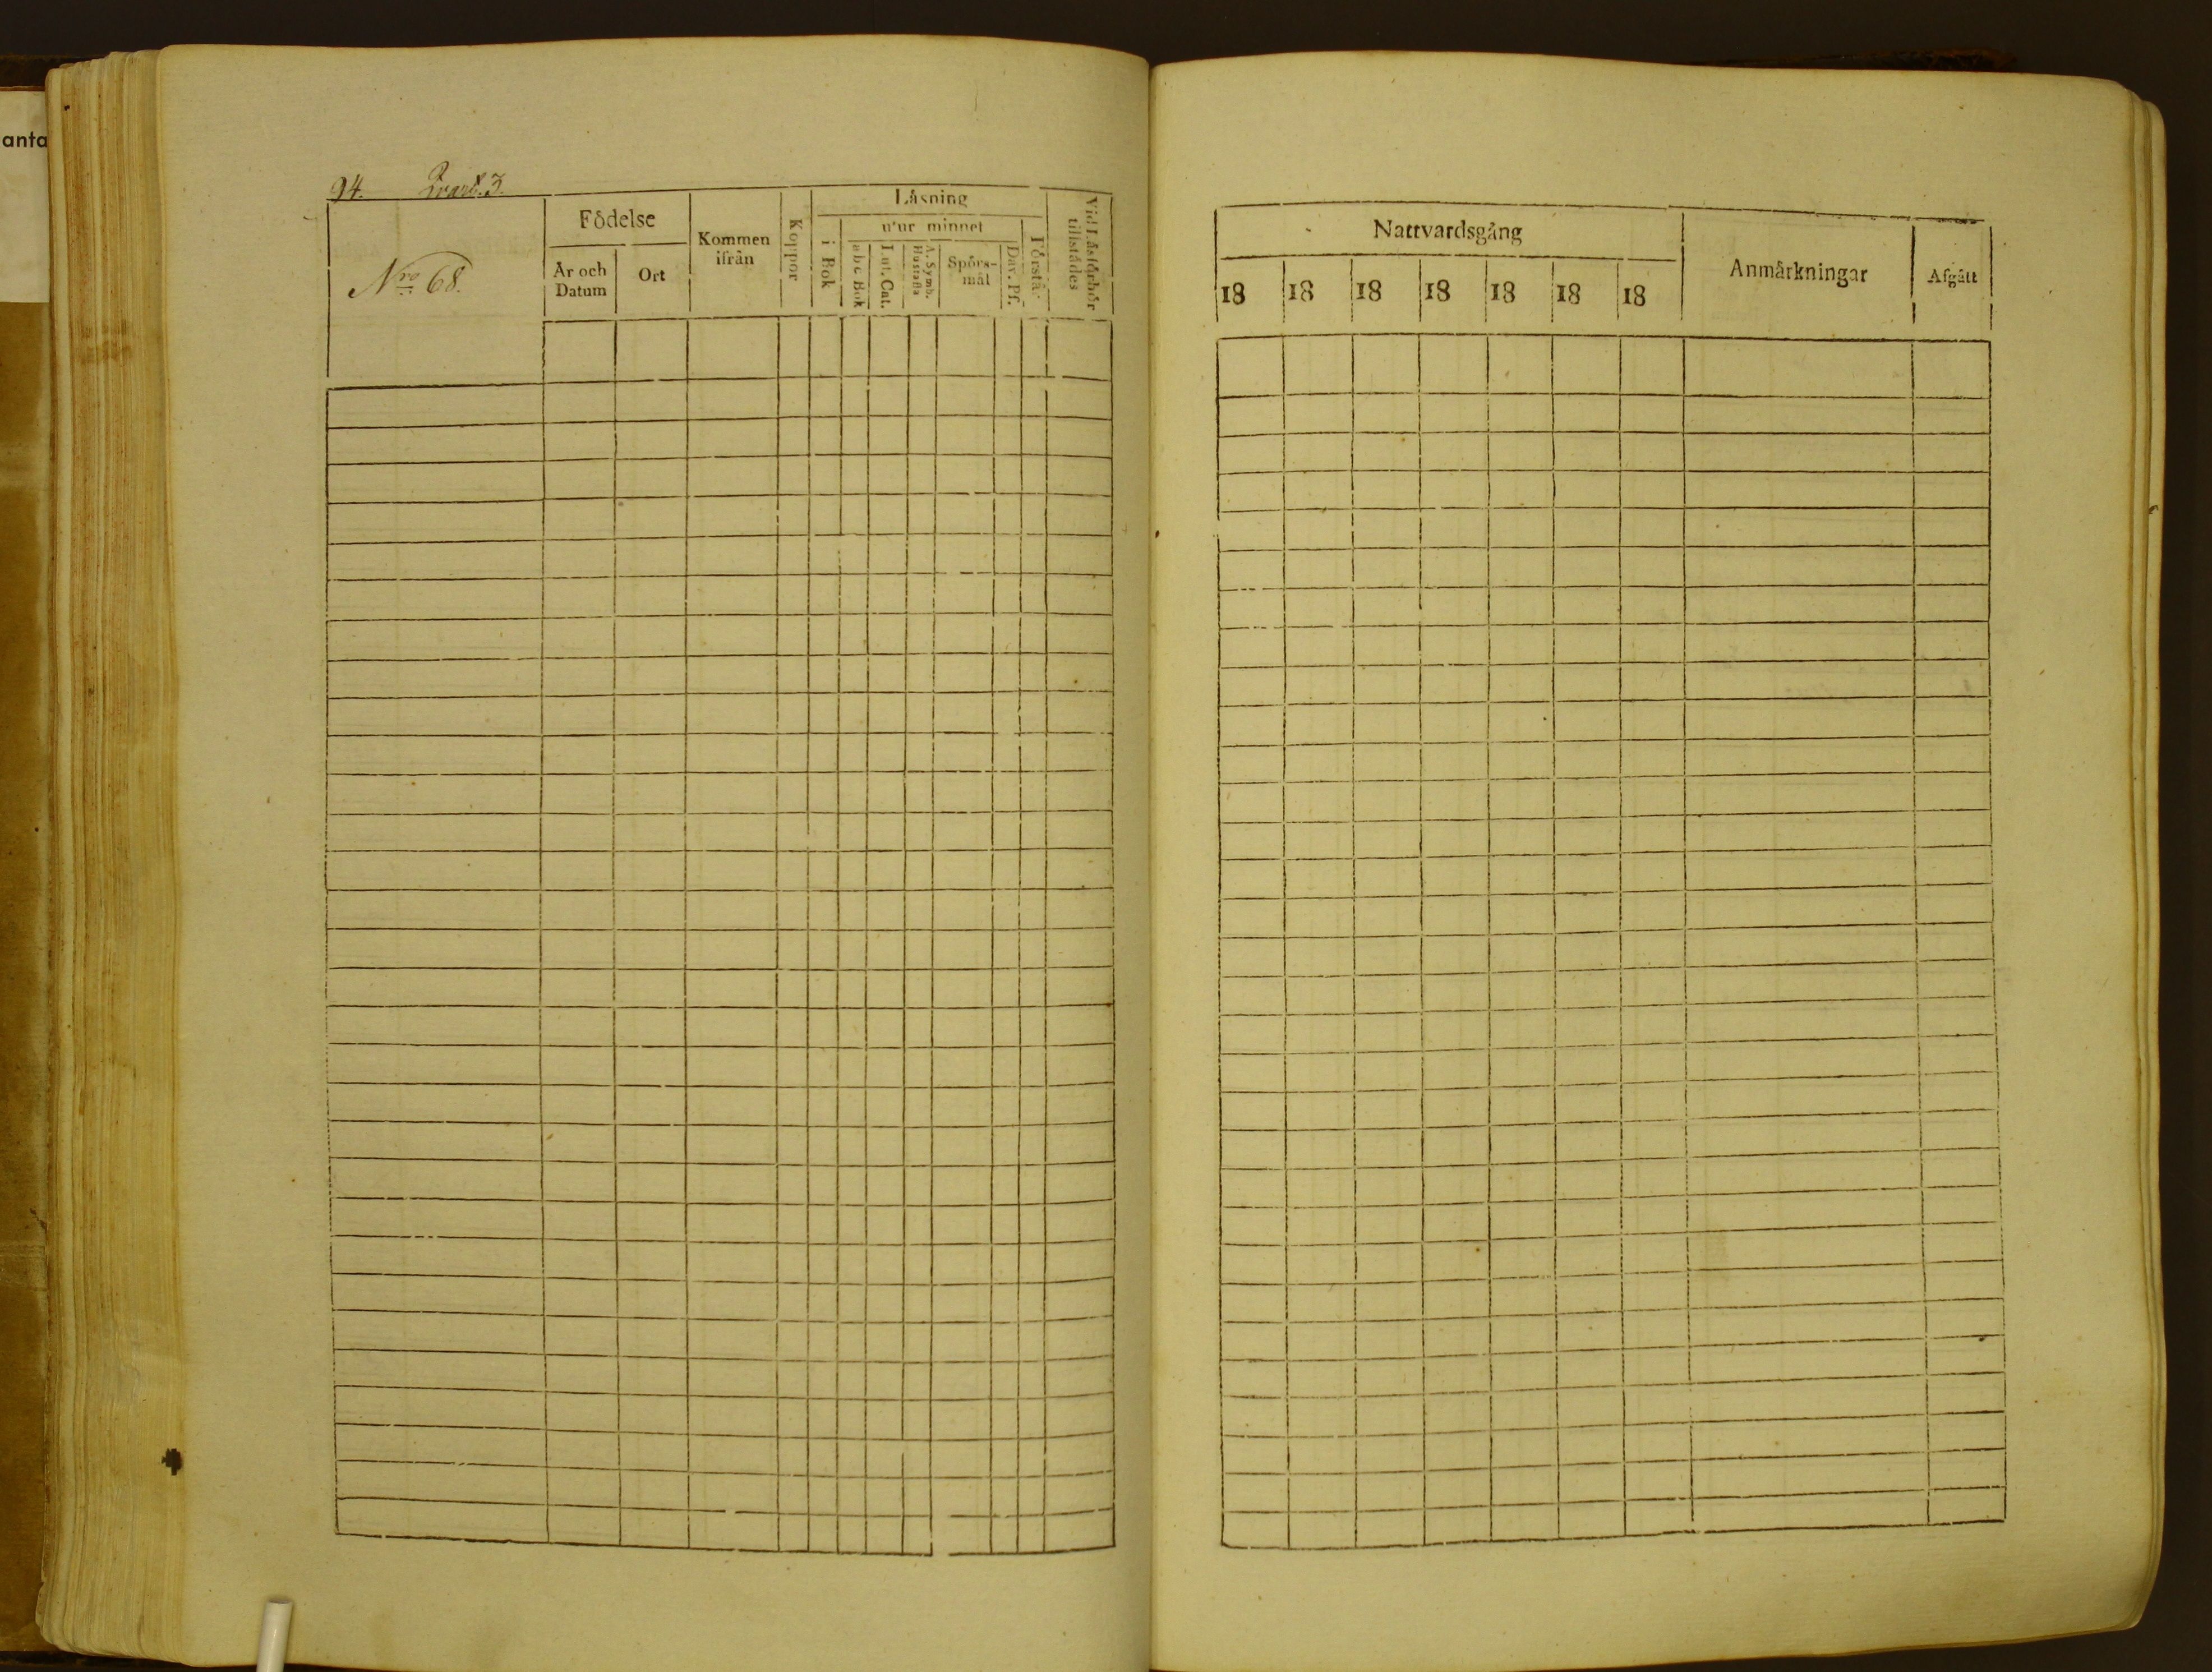 anta
94. Qvart. 3.
Nro 68.
Födelse
År och
Datum
Ort
Kommen
ifrån
Koppor
Läsning
i Bok
u'ur minnet
abc Bok
Lut. Cat.
A. Symb.
Hustafla
Spörs-
mål
Dav. Ps.
Förstå:
Vid Läsförhör
tillstädes
Nattvardsgång
18 18 18 18 18 18 18
Anmärkningar
Afgått